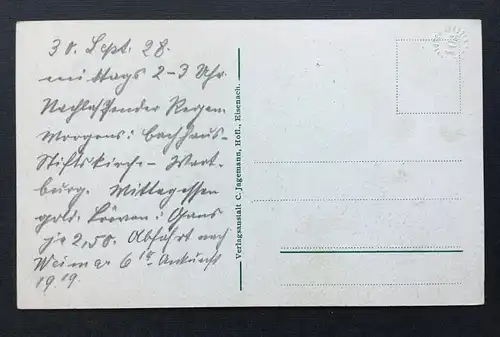 30. Sept. 28.
mittags 2-3 Uhr.
Nachlassender Regen
Morgens: Bachhaus-
Stiftskirche - Wart-
burg. Mittagessen
gold. Löwen: Gans
je 2,50. Abfahrt nach
Weimar 6 Ankunft
19.19.
Verlagsanstalt C. Jagemann, Hofl., Eisenach.